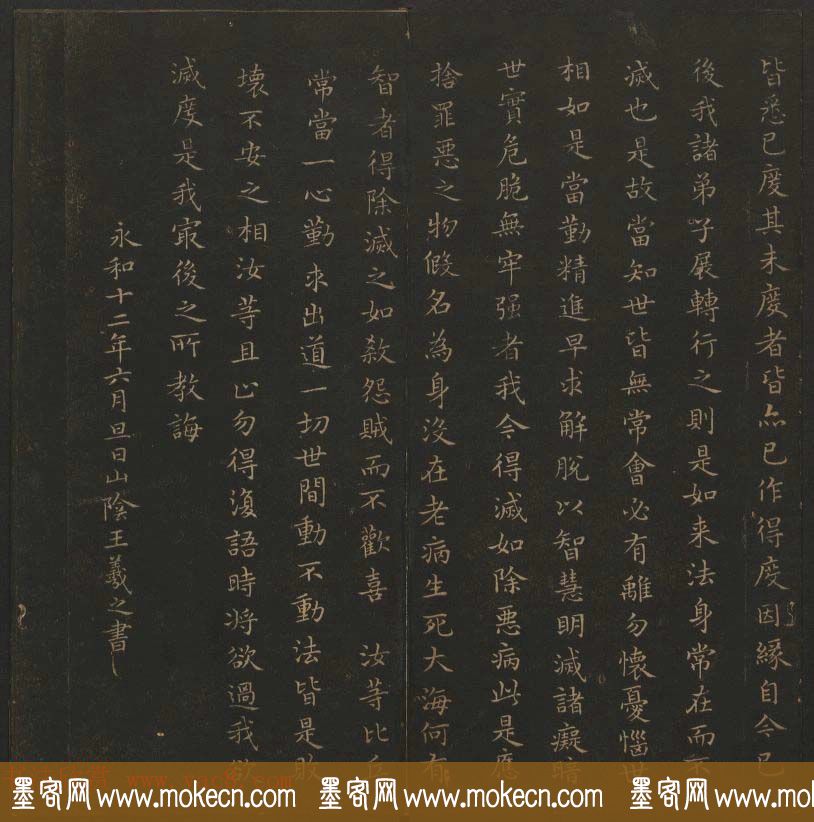 皆悉已度其未度者皆亦已作得度因緣自今已
後我諸弟子展轉行之則是如来法身常在而不
滅也是故當知世皆無常會必有離勿懷憂惱世
相如是當勤精進早求解脫以智慧明滅諸癡暗
世實危脆無牢强者我今得滅如除惡病此是應
捨罪惡之物假名為身没在老病生死大海何有
智者得除滅之如殺怨賊而不歡喜 汝等比丘
常當一心勤求出道一切世間動不動法皆是敗
壞不安之相汝等且止勿得復語時將欲過我欲
滅度是我㝡後之所教誨
永和十二年六月旦日山陰王羲之書
墨客网 www.mokecn.com 墨客网 www.mokecn.com 墨客网 www.mo